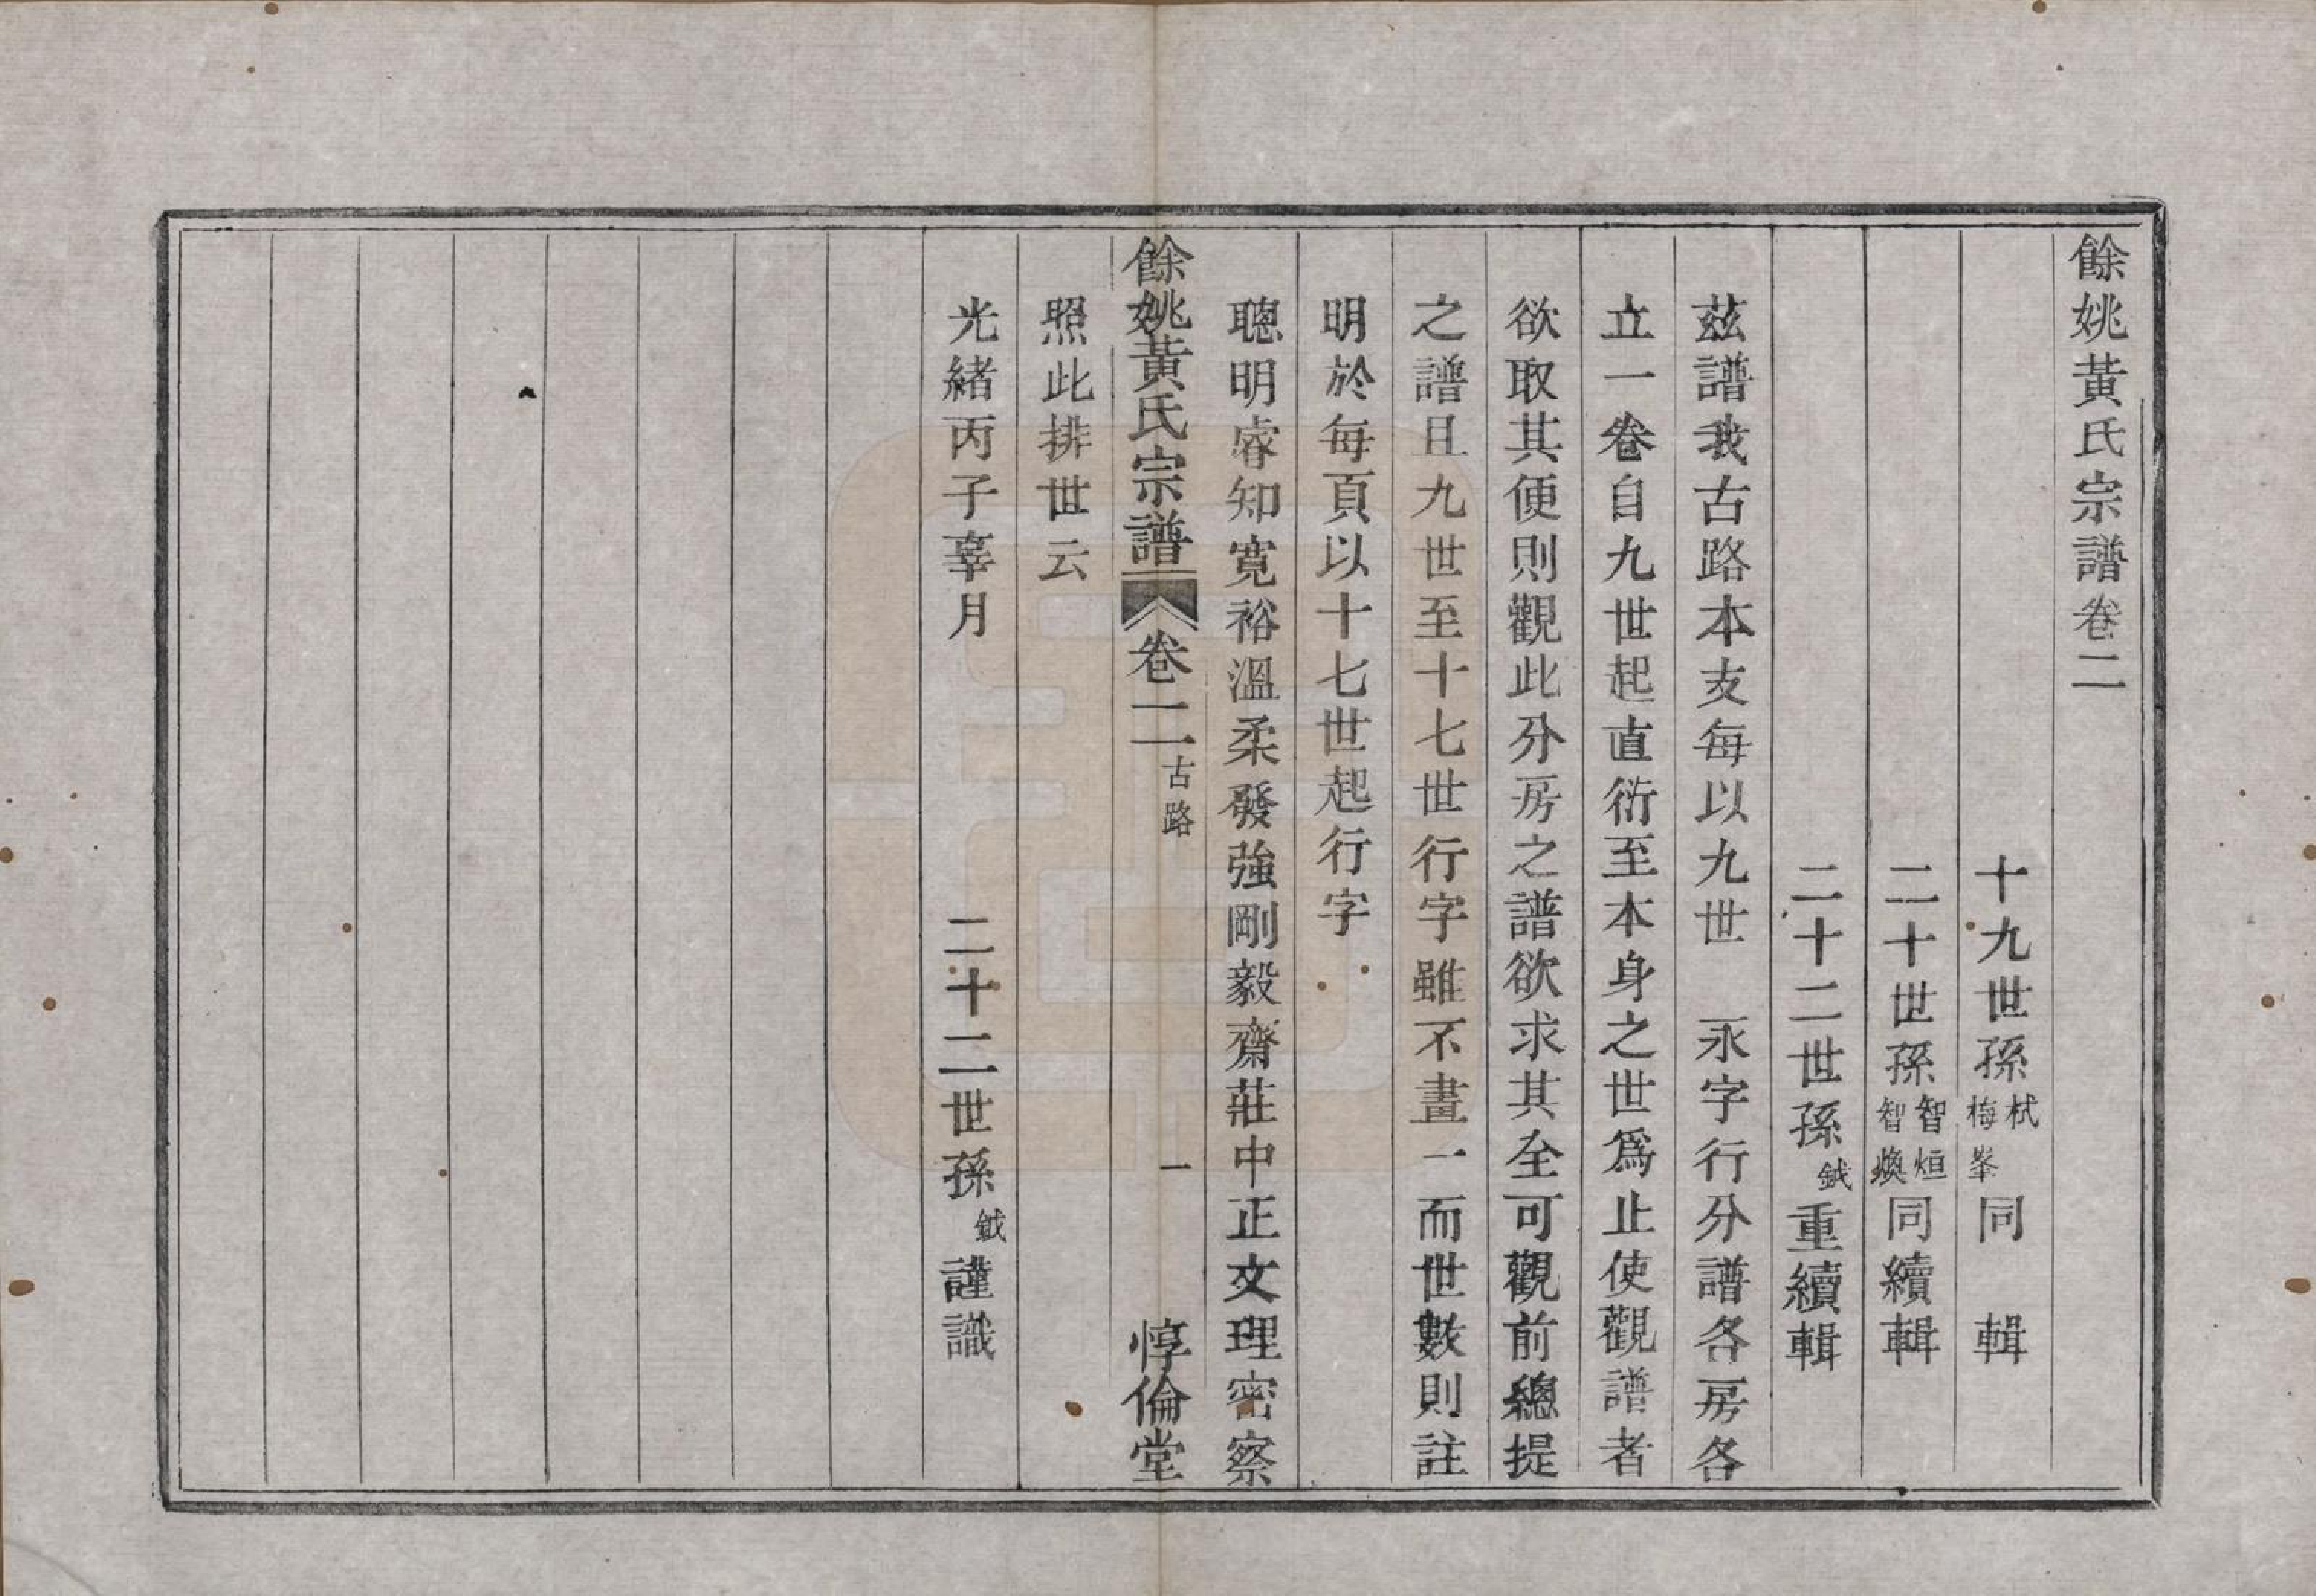 餘姚黃氏宗譜卷二
十九世孫栻梅峯同　輯
二十世孫智烜智煥同續輯
二十二世孫鉞重續輯
茲譜我古路本支每以九世　永字行分譜各房各
立一卷自九世起直衍至本身之世爲止使觀譜者
欲取其便則觀此分房之譜欲求其全可觀前總提
之譜且九世至十七世行字雖不畫一而世數則註
明於每頁以十七世起行字
聰明睿知寬裕溫柔發強剛毅齋莊中正文理密察
餘姚黃氏宗譜　卷二　古路　一　惇倫堂
照此排世云
光緒丙子辜月　二十二世孫鉞謹識